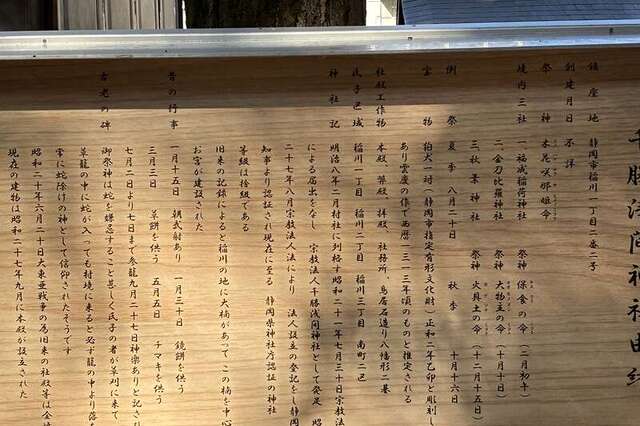 千勝浅間神社由緒
鎮座地　静岡市稲川一丁目二番二号
創建月日　不詳
祭神　木花咲耶姫命
境内三社　一、福成稲荷神社　祭神　保食の命（二月初午）
二、金刀比羅神社　祭神　大物主の命（十月十日）
三、秋葉神社　祭神　火具土の命（十二月十五日）
例祭　夏季　八月二十日　秋季　十月十六日
宝物　狛犬一対（静岡市指定有形文化財）正和二年乙卯と彫刻し
あり雲慶の作で西暦一三一三年頃のものと推定される
社殿工作物　本殿、幣殿、拝殿、社務所、鳥居石造り八幡形二基
氏子区域　稲川一丁目　稲川二丁目　稲川三丁目　南町二区
神社記　明治八年二月村社に列格す昭和二十一年七月三十日宗教法
による届出をなし　宗教法人千勝浅間神社として発足　昭
二十七年八月宗教法人法により　法人設立の登記をし静岡
知事より認証され現在に至る　静岡県神社庁認証の神社
等級は拾級である
旧来の記録によると稲川の地に大楠があって　この楠を中心
お宮が建設された
昔の行事　一月十五日　朝弐射あり　一月三十日　鏡餅を供う
三月三日　草餅を供う　五月五日　チマキを供う
七月二日より七日まで参籠九月二十七日神楽ありと記さ
古老の碑　御祭神は蛇を嫌忌すること甚しく氏子の者が草刈に来て
草籠の中に蛇が入っても村境に来ると必ず籠の中より落
常に蛇除けの神として信仰されたそうです
昭和二十年六月二十日大東亜戦争の為旧来の社殿等は全
現在の建物は昭和二十七年九月に本殿が設立された